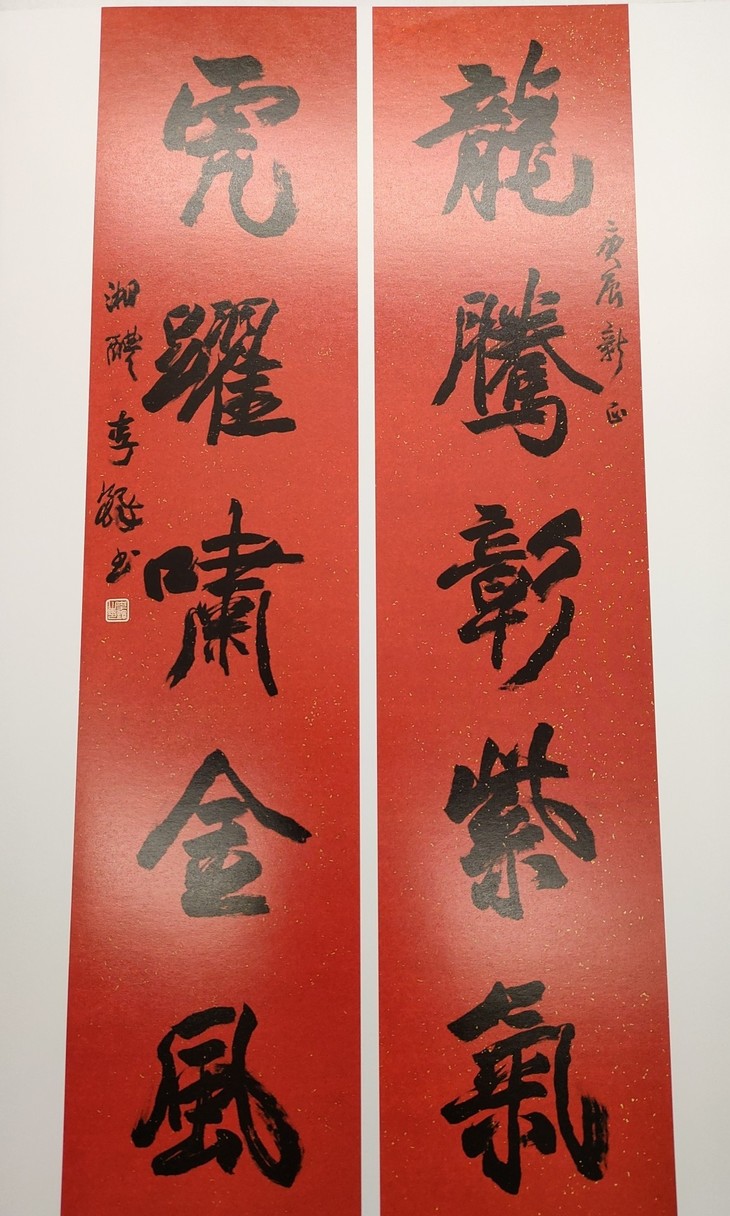 龍騰彰紫氣
庚辰新正
虎躍嘯金風
湘醴李鐸书